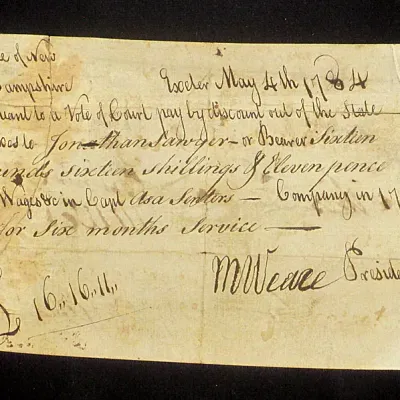 e of New
ampshire Exeter May 4th 1784
uant to a Vote of Court pay by discount out of the State
xes to Jonathan Sawyer - or Bearer Sixteen
unds sixteen shillings & Eleven pence
Wages &c in Capt Asa Senters - Company in 17
for Six months Service -
£ 16,,16,,11,,
MWeare Preside